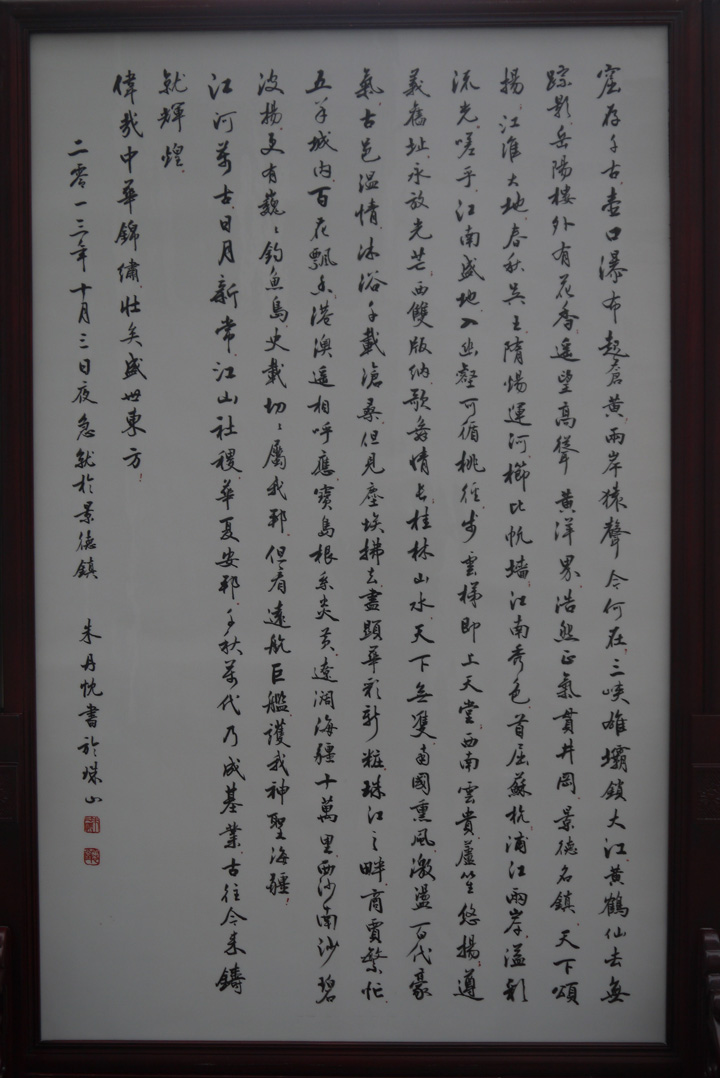 窟存千古壺口瀑布起蒼黃兩岸猿聲今何在三峽雄壩鎖大江黃鶴仙去無
踪影岳陽樓外有花香遥望高聳黃洋界浩然正氣貫井岡景德名鎮天下頌
揚江淮大地春秋吳王隋煬運河櫛比帆墙江南秀色首屈蘇杭浦江兩岸溢彩
流光嗟乎江南盛地入幽壑可循桃徑步雲梯即上天堂西南雲貴蘆笙悠揚遵
義舊址永放光芒西雙版纳歌舞情長桂林山水天下無雙南國熏風激盪百代豪
氣古邑溫情沐浴千載滄桑但見塵埃拂去盡顯華彩新粧珠江之畔商賈繁忙
五羊城内百花飄香港澳遥相呼應寳島根系炎黃遼濶海疆十萬里西沙南沙碧
波揚更有巍々釣魚島史載切々屬我邦但看遠航巨艦護我神聖海疆！
江河萬古日月新常江山社稷華夏安邦千秋萬代乃成基業古往今来鑄
就輝煌
偉哉中華錦繡壯矣盛世東方！
二零一三年十月三日夜急就於景德鎮 朱丹忱書於珠山